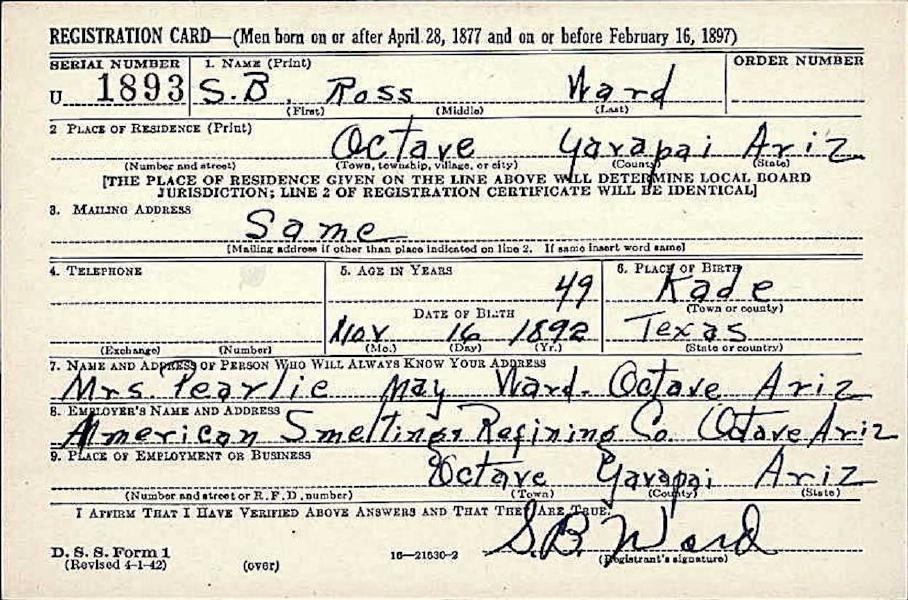 REGISTRATION CARD—(Men born on or after April 28, 1877 and on or before February 16, 1897)
SERIAL NUMBER 1. NAME (Print) ORDER NUMBER
U 1893 S.B. Ross Ward
(First) (Middle) (Last)
2 PLACE OF RESIDENCE (Print)
Octave Yavapai Ariz
(Number and street) (Town, township, village, or city) (County) (State)
[THE PLACE OF RESIDENCE GIVEN ON THE LINE ABOVE WILL DETERMINE LOCAL BOARD
JURISDICTION; LINE 2 OF REGISTRATION CERTIFICATE WILL BE IDENTICAL]
3. MAILING ADDRESS
Same
[Mailing address if other than place indicated on line 2. If same insert word same]
4. TELEPHONE 5. AGE IN YEARS 6. PLACE OF BIRTH
49 Kade
DATE OF BIRTH (Town or county)
Nov 16 1892 Texas
(Exchange) (Number) (Mo.) (Day) (Yr.) (State or country)
7. NAME AND ADDRESS OF PERSON WHO WILL ALWAYS KNOW YOUR ADDRESS
Mrs. Pearlie May Ward. Octave Ariz
8. EMPLOYER'S NAME AND ADDRESS
American Smelting Refining Co. Octave Ariz
9. PLACE OF EMPLOYMENT OR BUSINESS
Octave Yavapai Ariz
(Number and street or R.F.D. number) (Town) (County) (State)
I AFFIRM THAT I HAVE VERIFIED ABOVE ANSWERS AND THAT THEY ARE TRUE.
S.B. Ward
D. S. S. Form 1 16—21630-2 (Registrant's signature)
(Revised 4-1-42) (over)